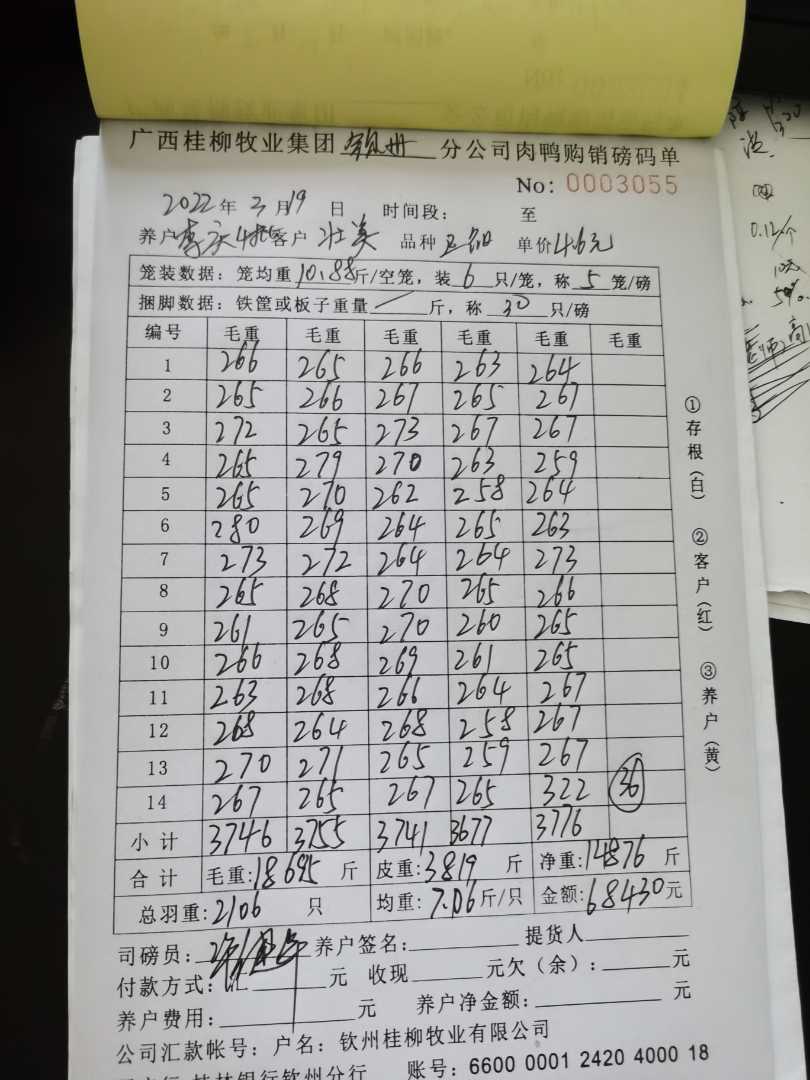 广西桂柳牧业集团 钦州 分公司肉鸭购销磅码单
No: 0003055
2022年3月19日 时间段: 至
养户 李庆4批 客户 壮美 品种 单价 4.6元
笼装数据: 笼均重10.88斤/空笼, 装6只/笼, 称5笼/磅
捆脚数据: 铁筐或板子重量 / 斤, 称 30 只/磅
编号 毛重 毛重 毛重 毛重 毛重 毛重
1 266 265 266 263 264
2 265 266 267 265 267
3 272 265 273 267 267
4 265 279 270 263 259
5 265 270 262 258 264
6 280 269 264 265 263
7 273 272 264 264 273
8 265 268 270 265 266
9 261 265 270 260 265
10 266 268 269 261 265
11 263 268 266 264 267
12 268 264 268 258 267
13 270 271 265 259 267
14 267 265 267 265 322 36
小计 3746 3755 3741 3677 3776
合计 毛重:18695 斤 皮重:3819 斤 净重:14876 斤
总羽重:2106 只 均重:7.06斤/只 金额:68430元
司磅员: 养户签名: 提货人
付款方式: 元 收现 元欠(余): 元
养户费用: 元 养户净金额: 元
公司汇款帐号: 户名: 钦州桂柳牧业有限公司
桂林银行钦州分行 账号: 6600 0001 2420 4000 18
①存根(白) ②客户(红) ③养户(黄)
0.12/个